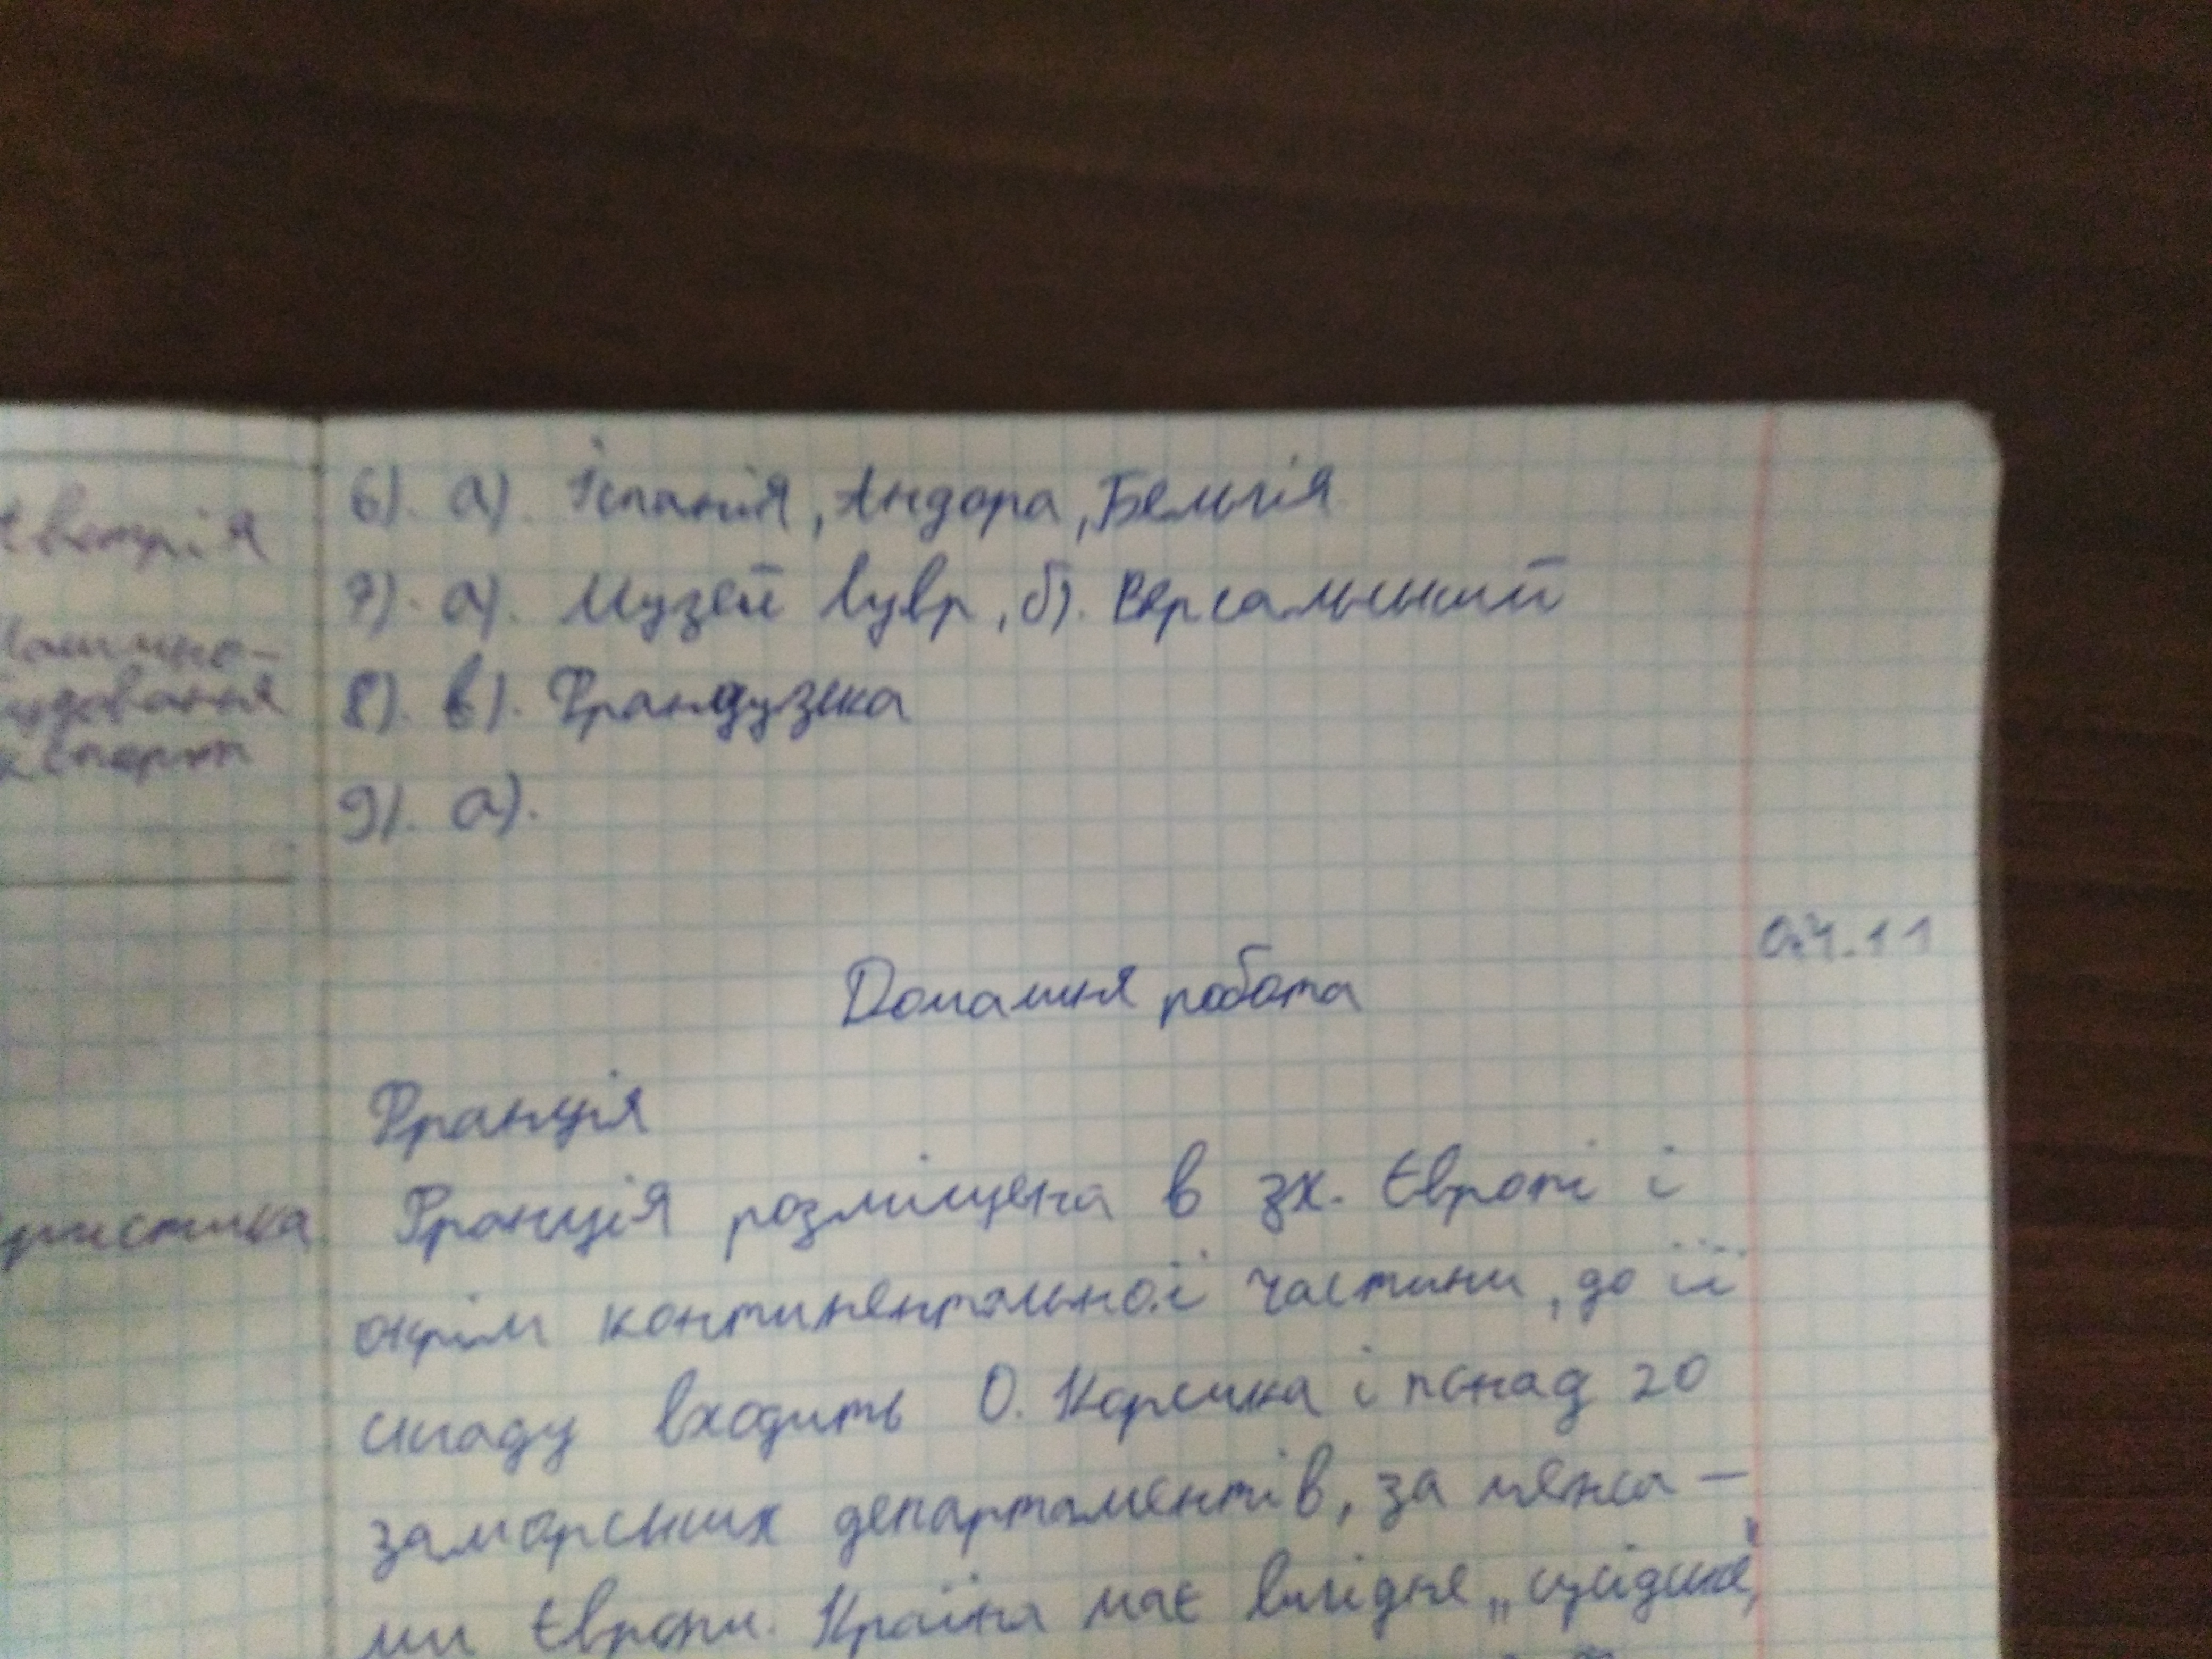 6). а). Іспанія, Андора, Бельгія
7). а). Музей Лувр, б). Версальський
8). в). Французька
9). а).
Домашня робота
Франція
Франція розміщена в зх. Європі і
окрім континентальної частини, до її
складу входить О. Корсика і понад 20
заморських департаментів, за межа-
ми Європи. Країна має вигідне „сусідське"